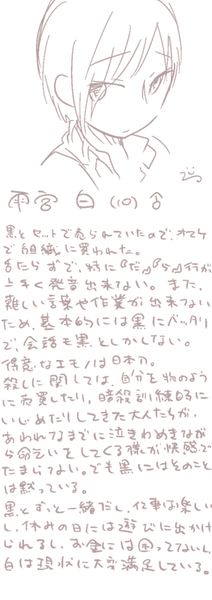 雨宮 白 (10) ♂
黒とセットで売られていたので、オマケ
で組織に買われた。
舌たらずで、特に『だ』『ら』行が
上手く発音出来ない。また、
難しい言葉や作業が出来ない
ため、基本的には黒にベッタリ
で、会話も黒としかしない。
得意なエモノは日本刀。
殺しに関しては、自分を物のよう
に売買したり、暗殺訓練時に
いじめたりしてきた大人たちが、
あわれなまでに泣きわめきなが
ら命乞いをしてくる様が快感で
たまらてよい。でも黒にはそのこと
は黙っている。
黒とずっと一緒だし、仕事は楽しい
し、休みの日には遊びに出かけ
られるし、お金には困ってないし、
白は現状に大変満足している。